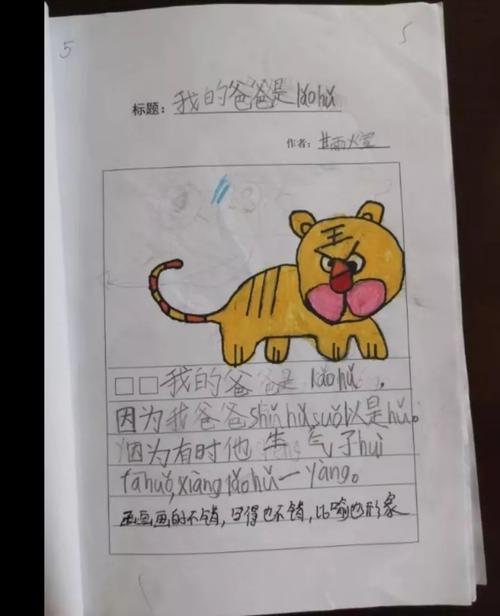 5
5
标题：我的爸爸是lǎohǔ
作者：
王
□□我的爸爸是lǎohǔ，
因为我爸爸shǔhǔ,suǒ以是hǔ。
因为有时他生气了huì
fāhuǒ,xiànglǎohǔ一yàng。
画画的不错，写得也不错，比喻也形象